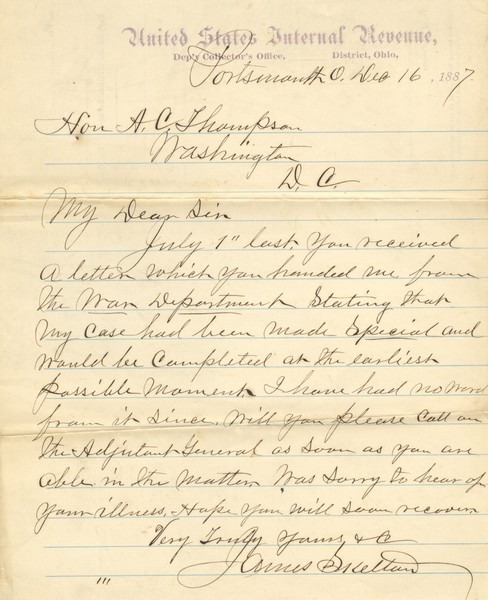 United States Internal Revenue,
Dep'y Collector's Office, District, Ohio,
Portsmouth O. Dec 16, 1887.
Hon A. C. Thompson
Washington
D. C.
My Dear Sir
July 1" last you received
a letter which you handed me from
the War Department Stating that
my case had been made Special and
would be completed at the earliest
possible moment I have had no word
from it since. Will you please call on
the Adjutant General as soon as you are
able in the matter Was sorry to hear of
your illness. Hope you will soon recover
Very Truly Yours, & C
James Skelton
"'